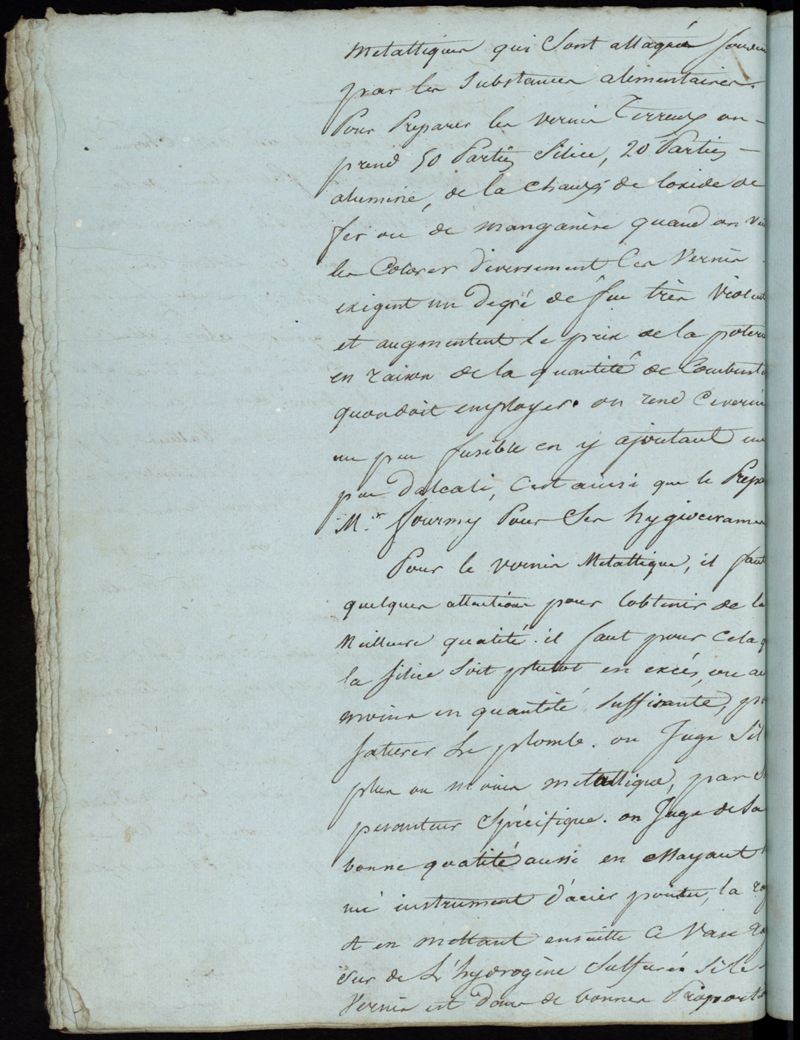 Metalliques qui sont attaqués souven
par les substances alimentaires.
Pour Preparer les vernis Terreux on
prend 50 Parties Silice, 20 Parties
alumine, de la chaux, de loxide de
fer ou de manganèse quand on v
les Colorer diversement Ces Vernis
exigent un degré de feu très violent
et augmentent le prix de la poteri
en raison de la quantité de Combusti
quondoit employer. on rend ce verni
un peu fusible en y ajoutant un
peu dalcali, C'est ainsi que le Prepa
M.r fourmy Pour Ses hygiocerames
Pour le vernis Metallique, il faut
quelques attentions pour lobtenir de la
Meilleure qualité. il faut pour cela q
la silice Soit plutot en excés, ou au
moins en quantité suffisante, po
saturer Le plomb. on Juge Sil
plus ou moins metallique, par S
pesanteur Spécifique. on Juge de Sa
bonne qualité aussi en essayant
un instrument d'acier pointu, la
et en mettant ensuitte ce vase
sur de L'hydrogène Sulfuré. Si le
Vernis est dans de bonnes Proporti